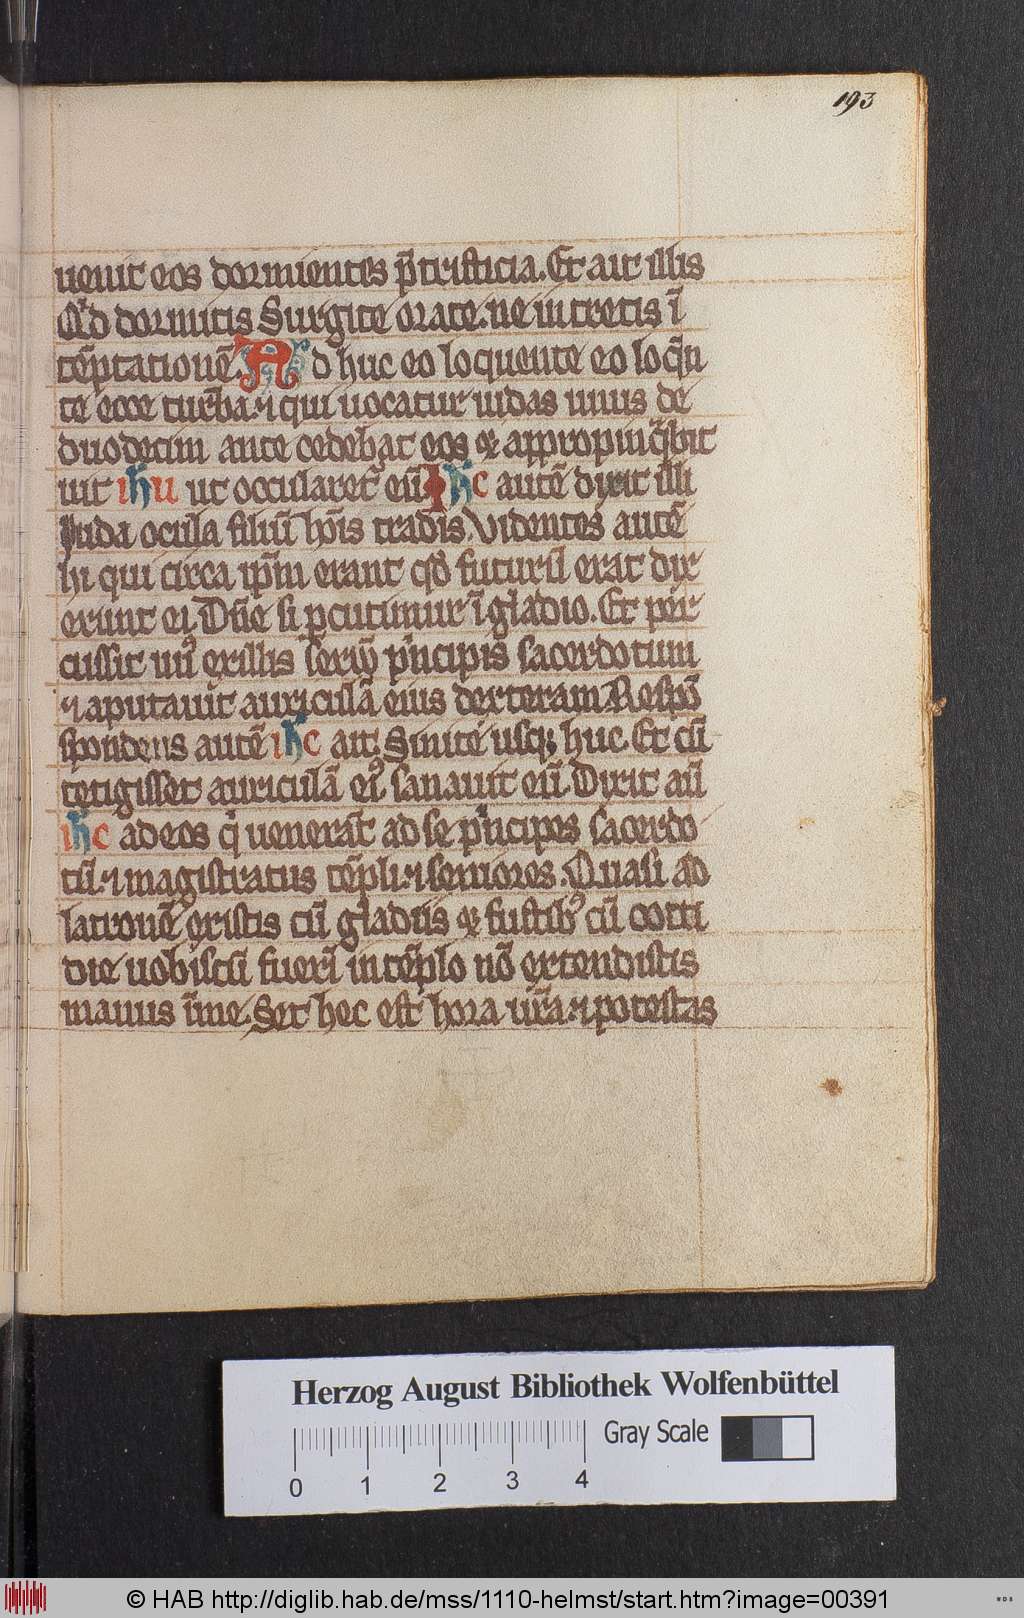 193
uenit eos dormientes p̄ tristicia. Et ait illis
Qͥd dormitis Surgite orate. ne intretis ī
tēptationē. Ad huc eo loquente eo loq̄n
te ecce turba. ⁊ qui uocatur iudas unus de
duodecim ante cedebat eos et appropinq̄bit
uit ihu ut occularet̉ eū ihc autē dixit illi
Iuda ocula filiū hōis tradis. Videntes autē
hi qui circa ip̄m erant qd̄ futurū erat dix
erunt ei. Dn̄e si ꝑcutimur ī gladio. Et per
cussit unꝰ exillis seruū pͥncipis sacerdotum
⁊ aputauit auriculā eius dexteram Respō
spondens autē ihc ait. Sinite usqꝫ huc. Et cū
tetigisset auriculā eiꝰ. sanauit eū. Dixit aū
ihc ad eos qͥ uenerāt ad se pͥncipes sacerdo
tū. ⁊ magistratus tēpli. ⁊ seniores. Quasi ad
latronē existis cū gladiis et fustibꝰ cū cotti
die uobiscū fuerī in tēplo nō extendistis
manus ī me. Set hec est hora ur̄a ⁊ potestas
Herzog August Bibliothek Wolfenbüttel
Gray Scale
0 1 2 3 4
© HAB http://diglib.hab.de/mss/1110-helmst/start.htm?image=00391